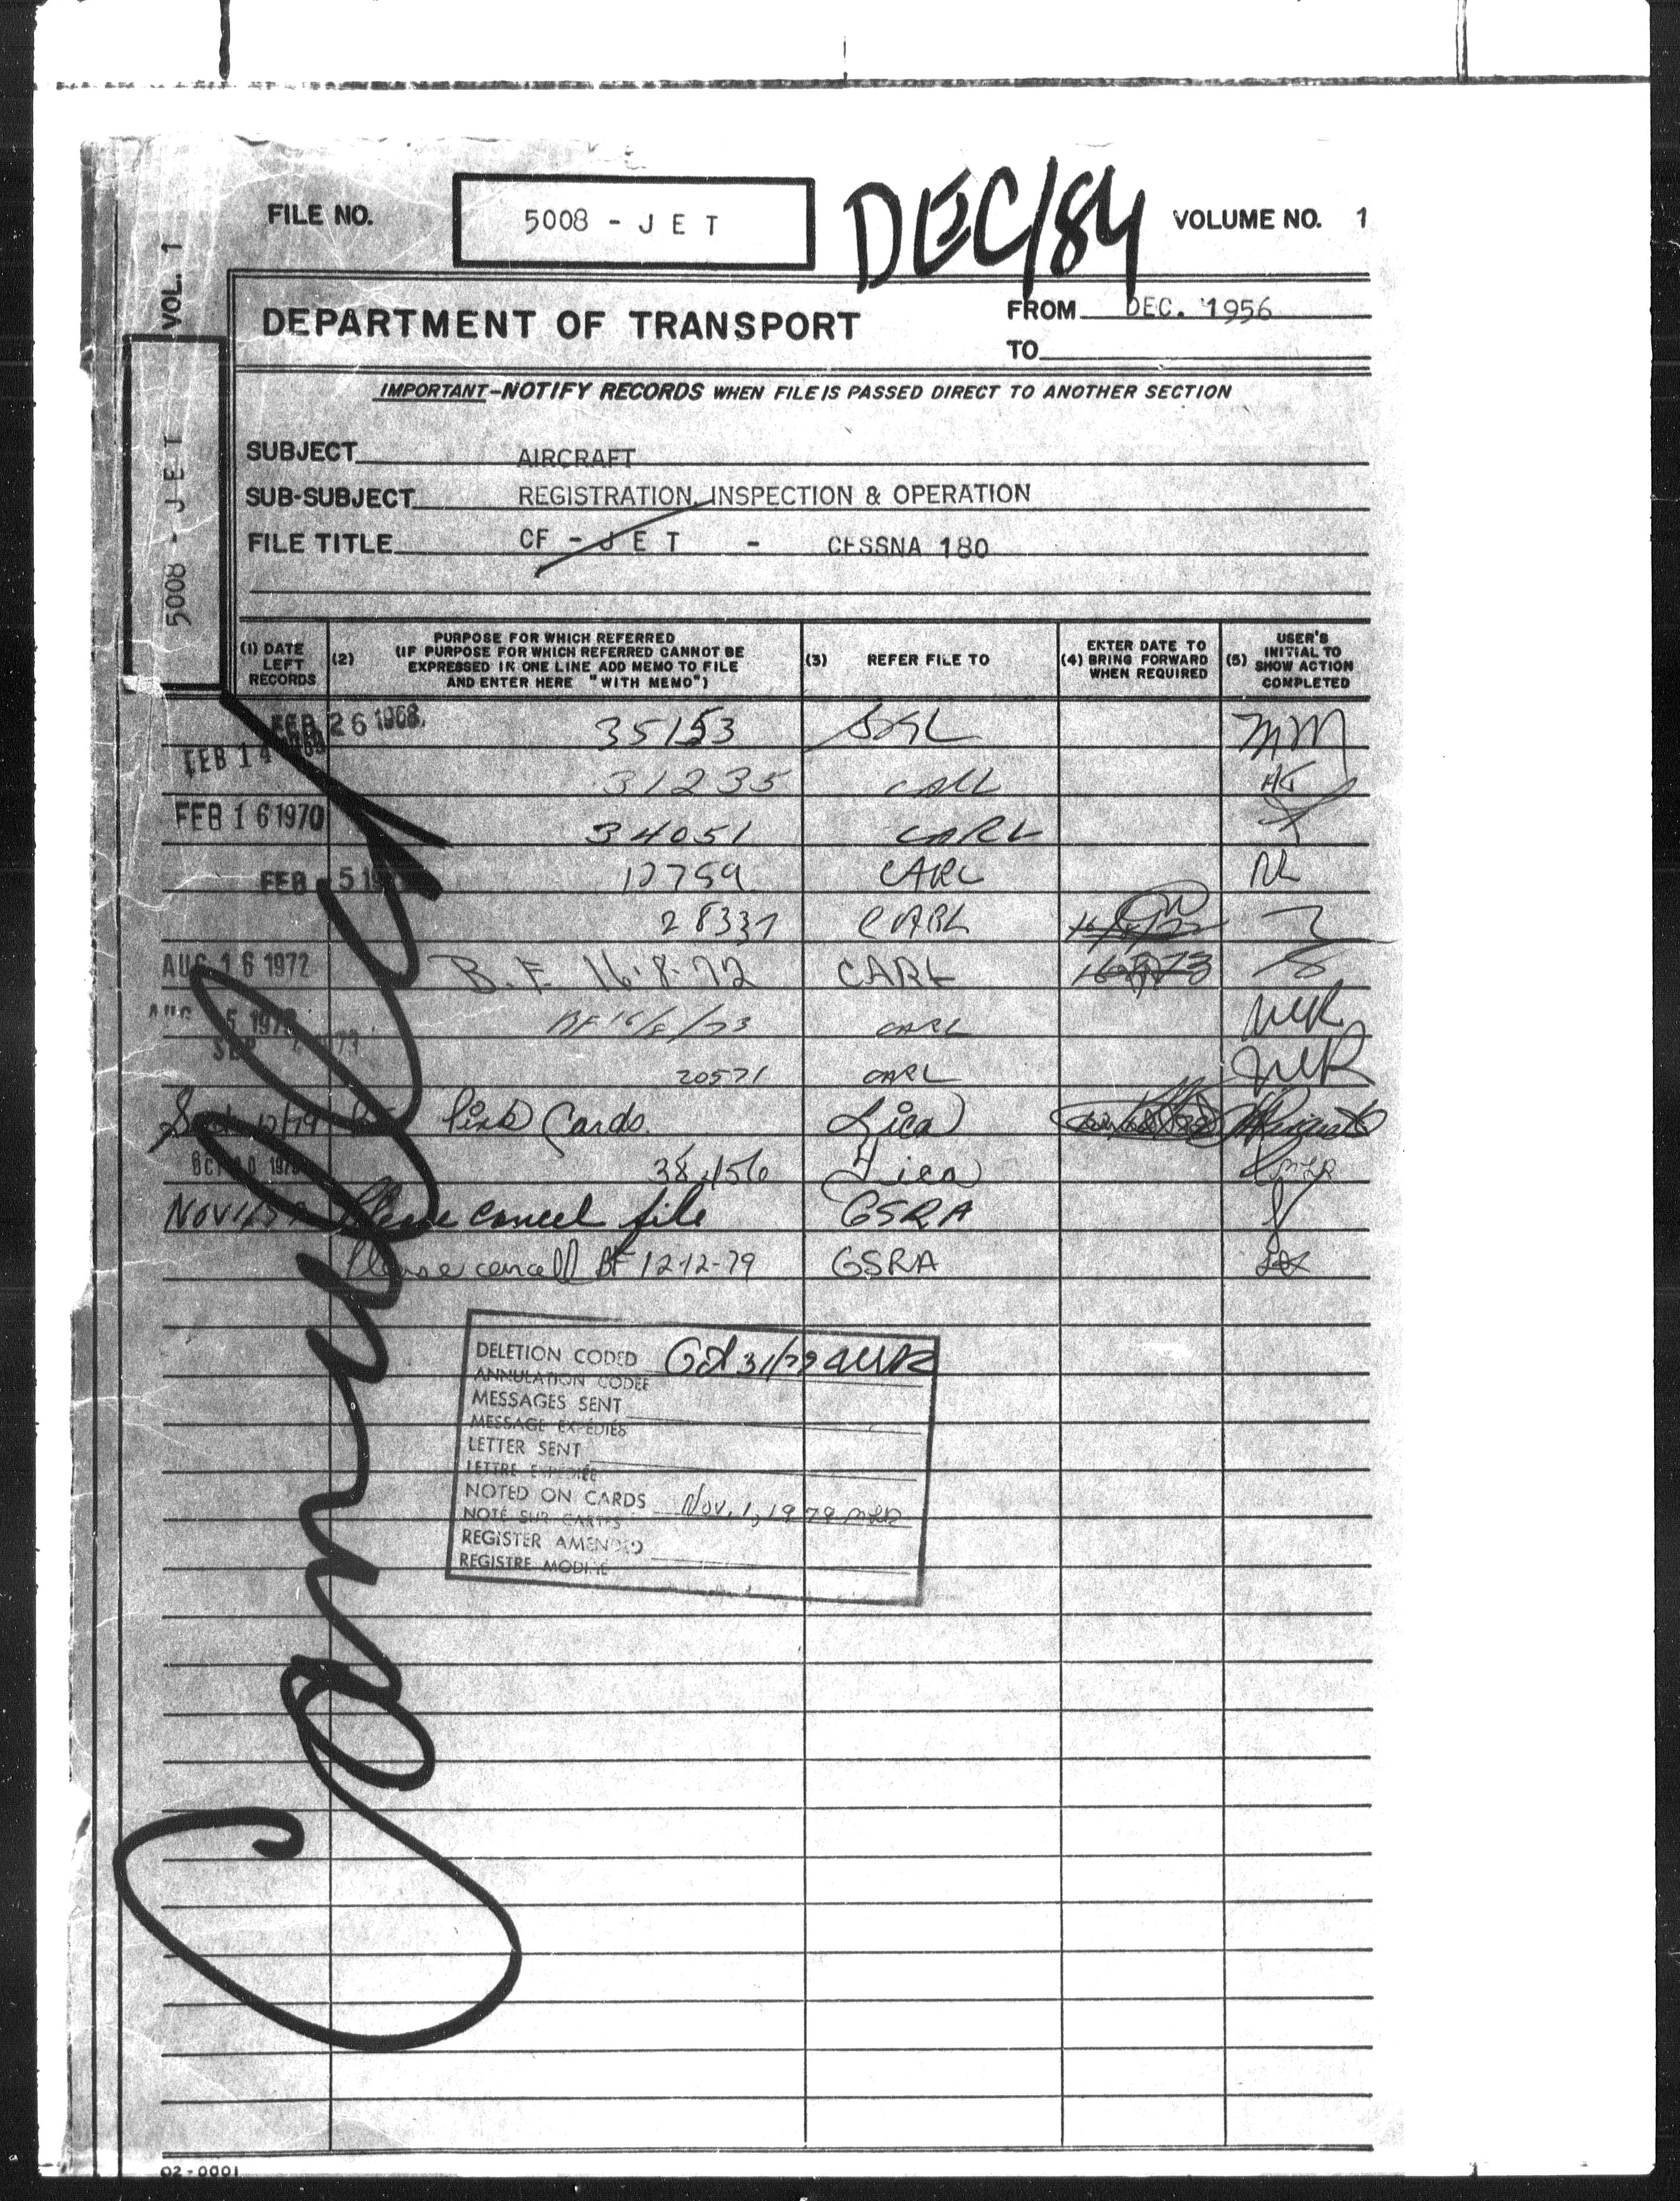 FILE NO. 5008 - JET DEC/84 VOLUME NO. 1
VOL. 1
5008 - JET
DEPARTMENT OF TRANSPORT
FROM DEC. 1956
TO
IMPORTANT-NOTIFY RECORDS WHEN FILE IS PASSED DIRECT TO ANOTHER SECTION
SUBJECT AIRCRAFT
SUB-SUBJECT REGISTRATION, INSPECTION & OPERATION
FILE TITLE CF - JET - CESSNA 180
(1) DATE LEFT RECORDS
(2) PURPOSE FOR WHICH REFERRED
(IF PURPOSE FOR WHICH REFERRED CANNOT BE
EXPRESSED IN ONE LINE ADD MEMO TO FILE
AND ENTER HERE "WITH MEMO")
(3) REFER FILE TO
(4) ENTER DATE TO BRING FORWARD WHEN REQUIRED
(5) USER'S INITIAL TO SHOW ACTION COMPLETED
FEB 26 1968 35153 MM
FEB 14 31235 CARL
FEB 16 1970 34051 CARL
FEB -5 12759 CARL
28337 CARL
AUG 16 1972 B.F. 16-8-72 CARL
BF 16/8/73 CARL
SEP 20571 CARL
Pink Cards. Lica
OCT 38456 Lica
NOV 1/79 Please cancel file GSRA
Please cancell BF 12-12-79 GSRA
Cancelled
DELETION CODED Oct 31/79
ANNULATION CODÉE
MESSAGES SENT
MESSAGE EXPÉDIÉS
LETTER SENT
LETTRE EXPÉDIÉE
NOTED ON CARDS Nov. 1, 1979
NOTÉ SUR CARTES
REGISTER AMENDED
REGISTRE MODIFIÉ
02-0001